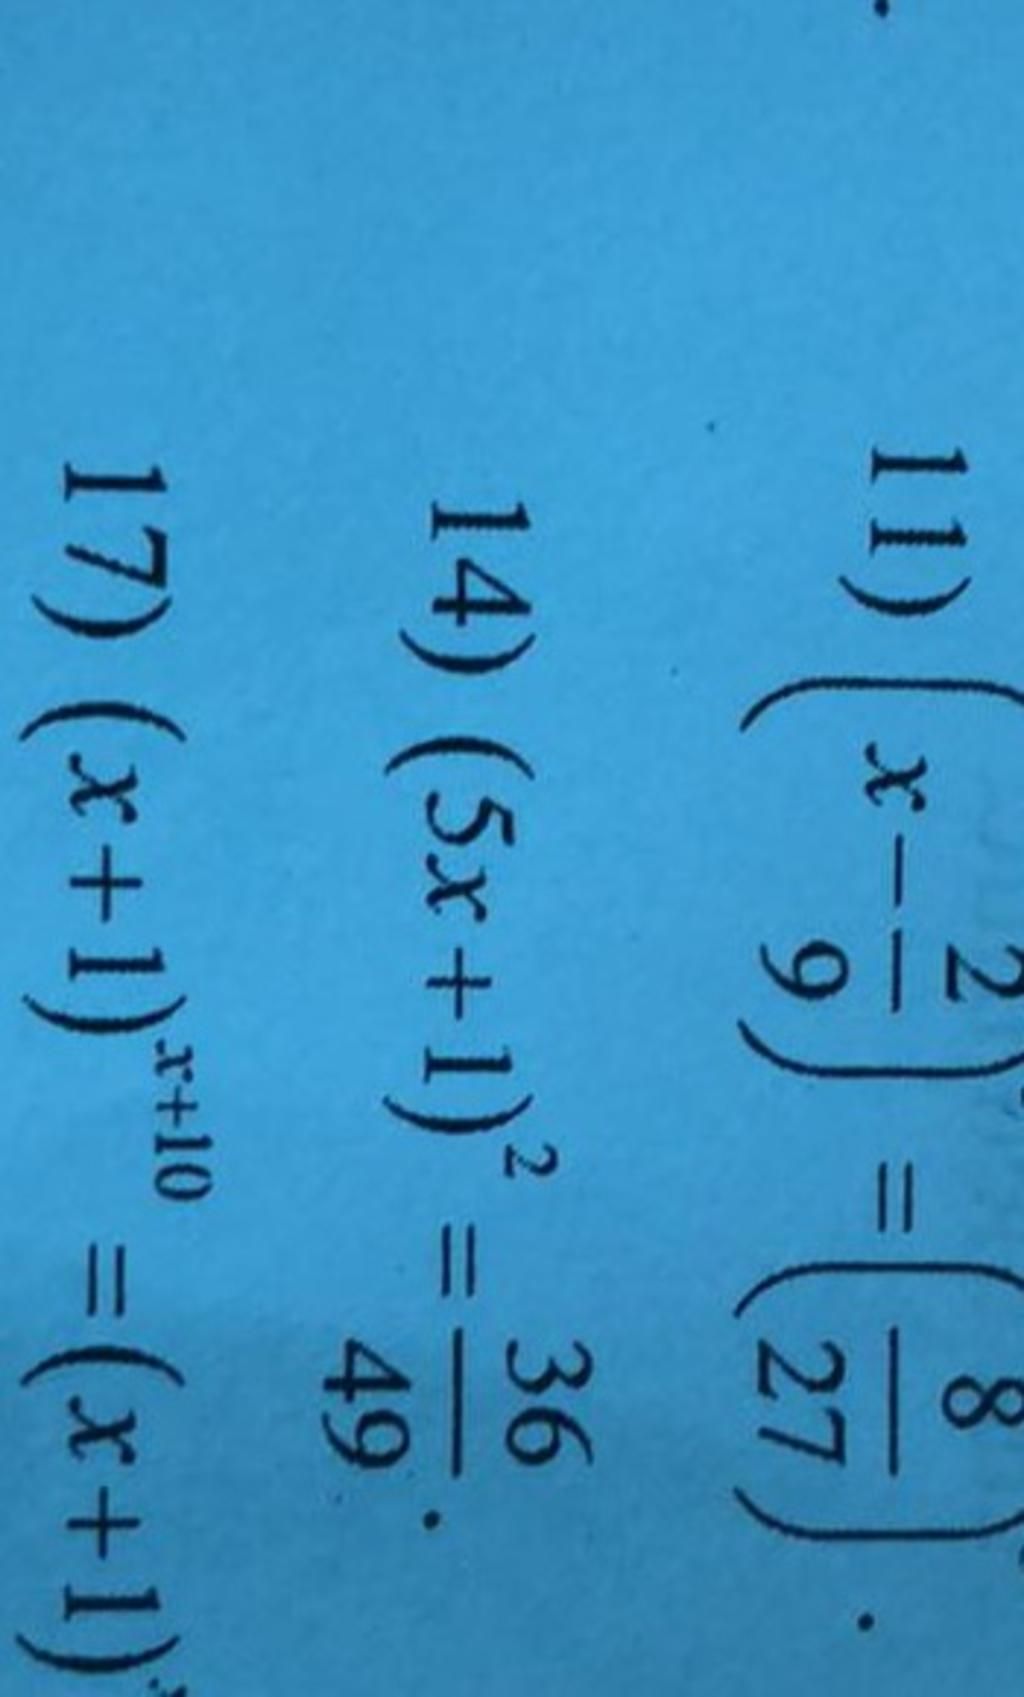 11) (x - 2/9) = (8/27).
14) (5x + 1)² = 36/49.
17) (x + 1)ˣ⁺¹⁰ = (x + 1)